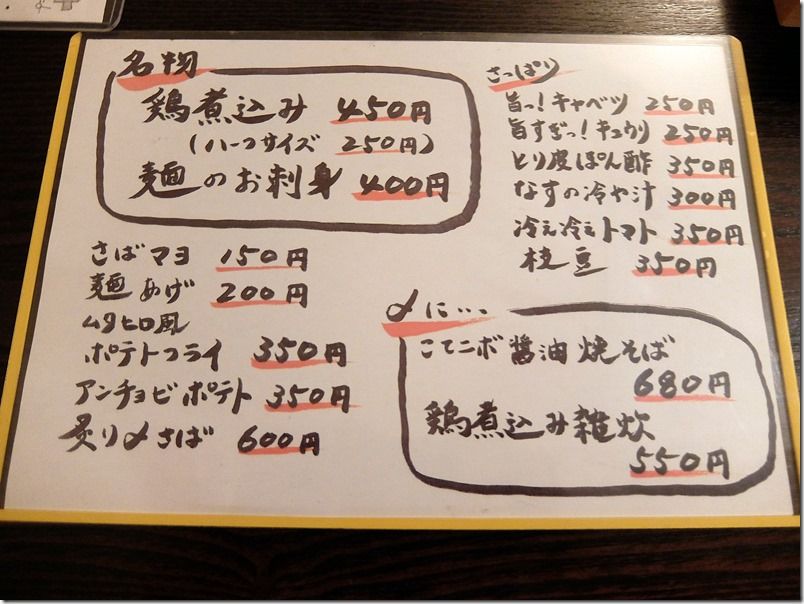 名物
鶏煮込み 450円
(ハーフサイズ 250円)
麺のお刺身 400円
さばマヨ 150円
麺あげ 200円
ムタヒロ風
ポテトフライ 350円
アンチョビポテト 350円
炙り〆さば 600円
さっぱり
旨っ!キャベツ 250円
旨すぎっ!キュウリ 250円
とり皮ぽん酢 350円
なすの冷や汁 300円
冷え冷えトマト 350円
枝豆 350円
〆に・・・
こてニボ醤油焼そば
680円
鶏煮込み雑炊
550円